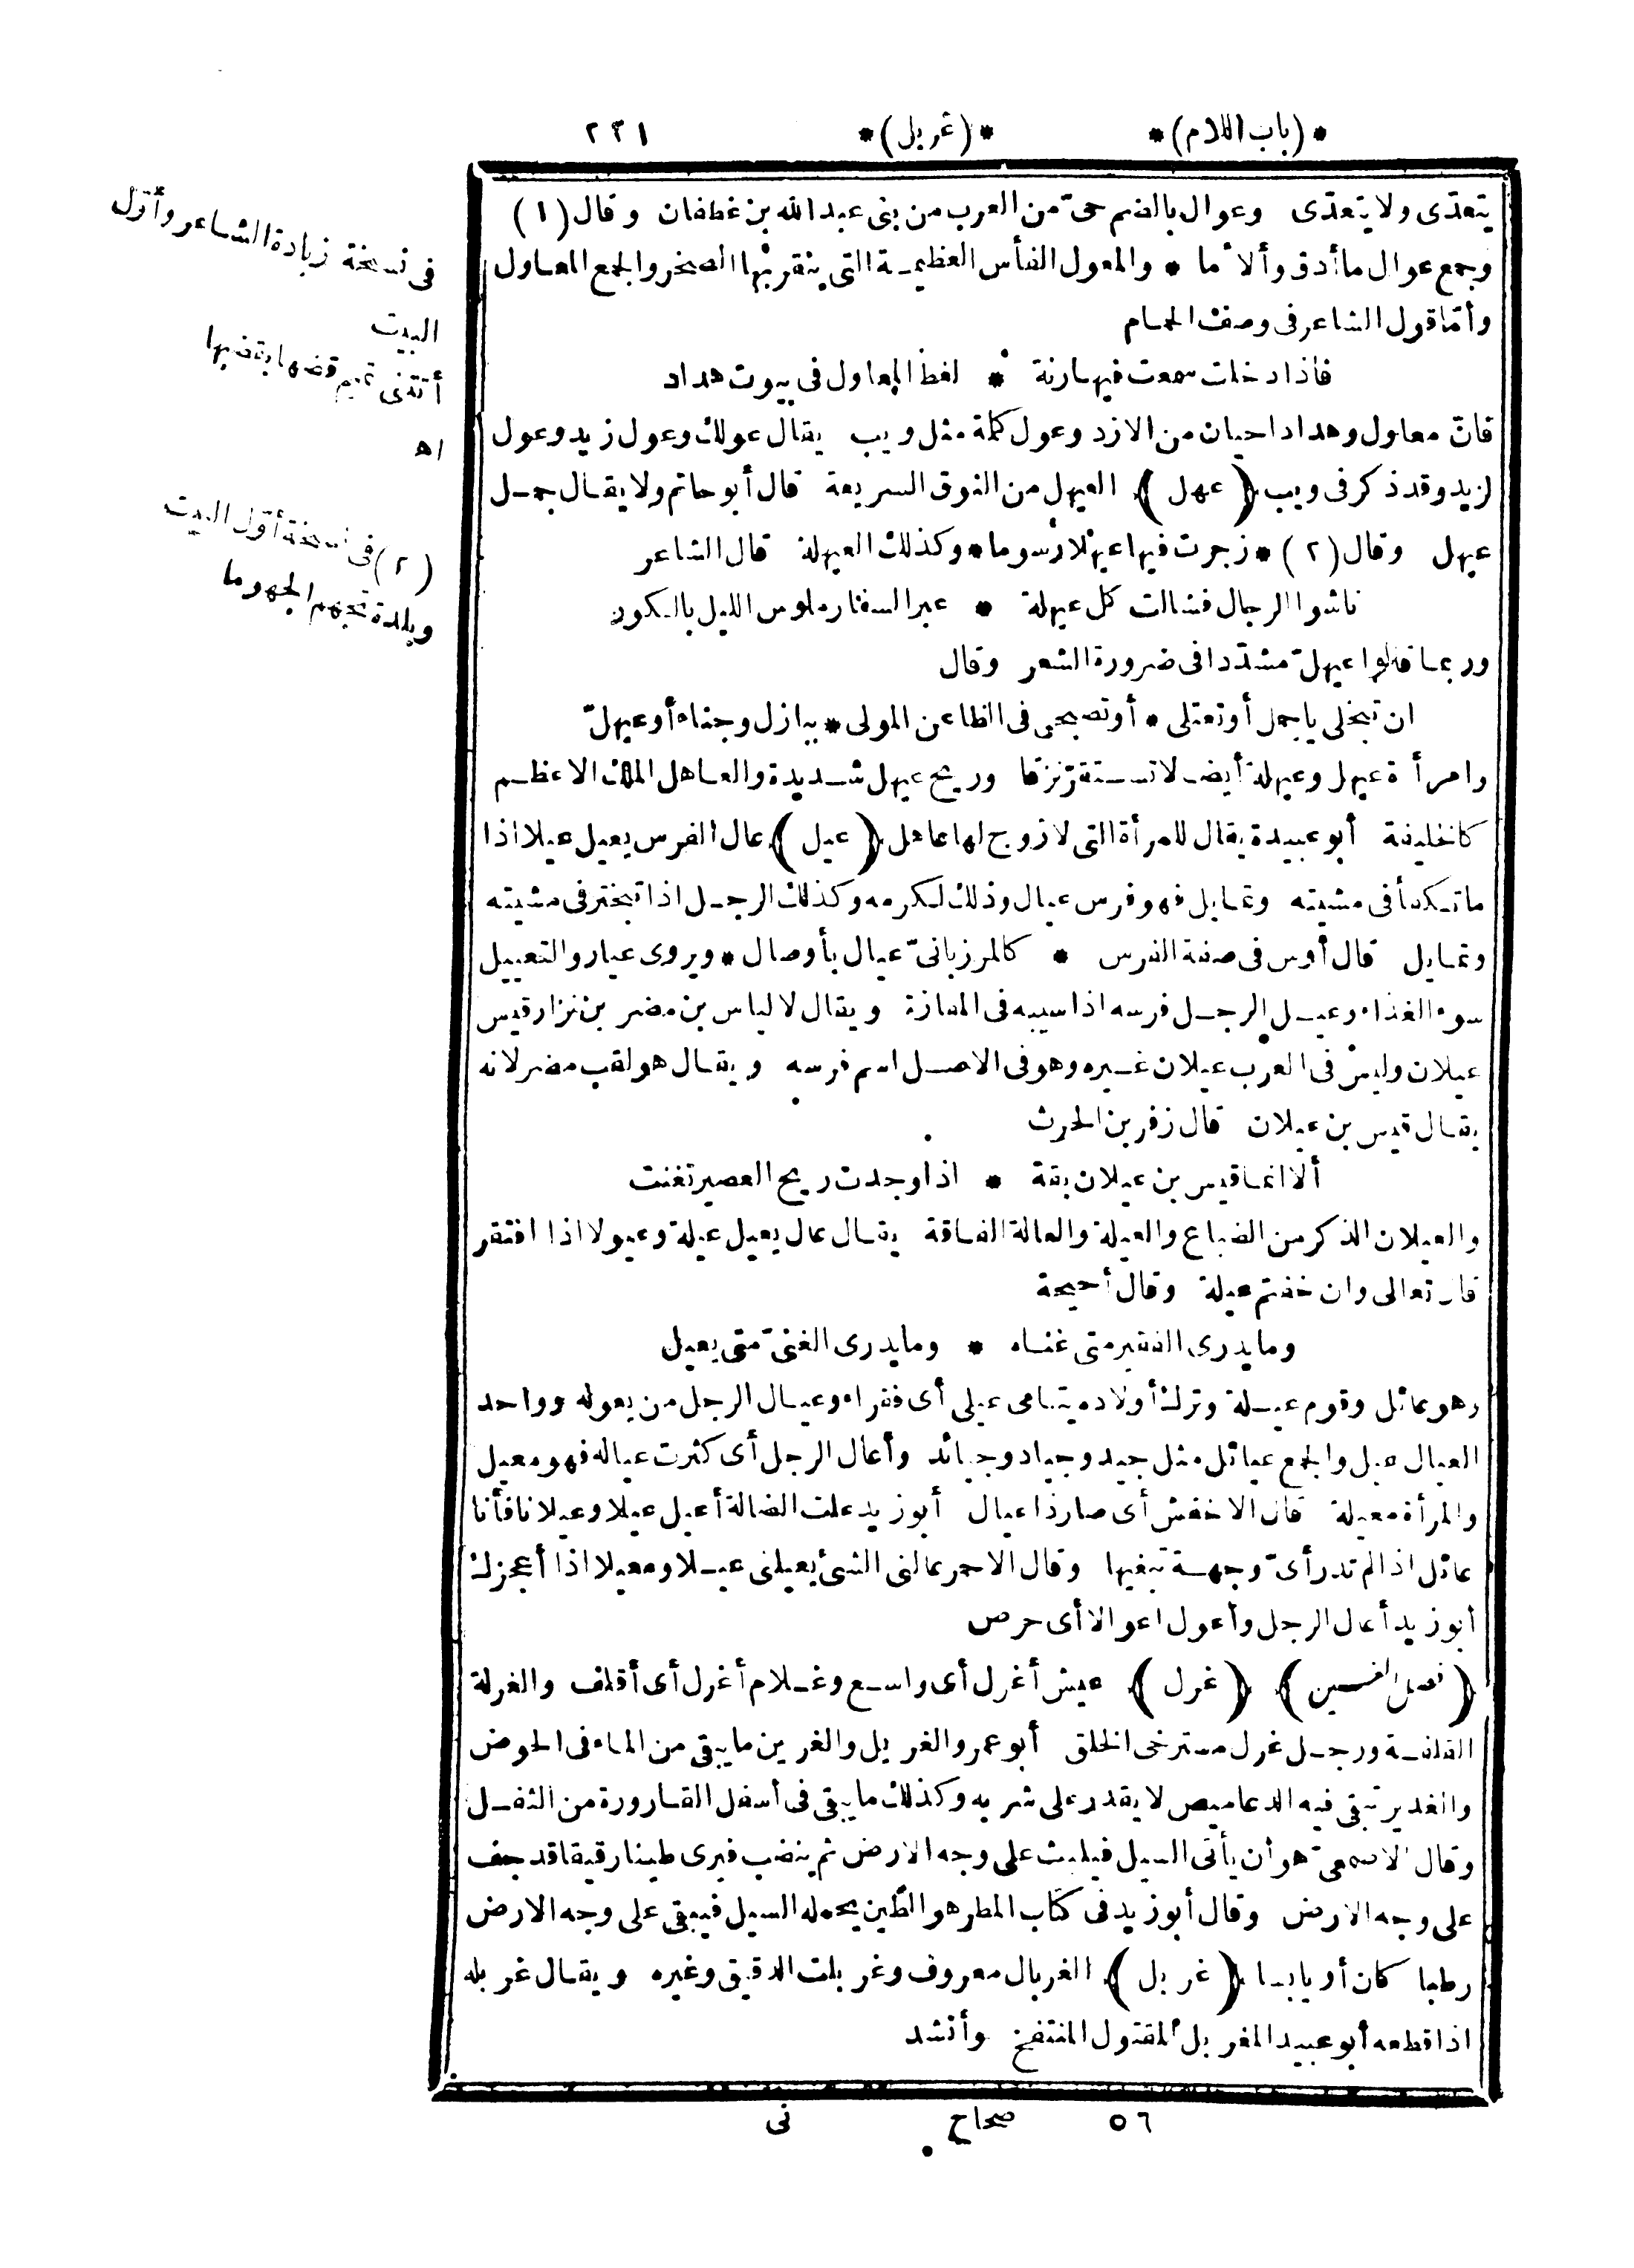 *(باب اللام)* *(غربل)* ٢٣١
يتعدّى ولا يتعدّى وعوال بالضم حىّ من العرب من بنى عبد الله بن غطفان وقال (١)
وجمع عوال ما أدق وألأما * والمعول الفأس العظيمة التى ينقر بها الصخر والجمع المعاول
وأمّا قول الشاعر فى وصف الحمام
فاذا دخلت سمعت فيها رنة * لغط المعاول فى بيوت هداد
فانّ معاول وهداد احيان من الازد وعول كلمة مثل ويب يقال عولك وعول زيد وعول
لزيد وقد ذكر فى ويب (عهل) العيهل من النوق السريعة قال أبو حاتم ولا يقال جمل
عيهل وقال (٢) * زجرت فيها عيهلا رسوما * وكذلك العيهلة قال الشاعر
ناشوا الرجال فشالت كل عيهلة * عبر السفار ملوس الليل بالكور
وربما قالوا عيهلّ مشدّدا فى ضرورة الشعر وقال
ان تبخلى يا جمل أو تعتلى * أو تصبحى فى الظاعن المولى * ببازل وجناء أو عيهلّ
وامرأة عيهل وعيهلة أيضا لا تستقرّ نزقا وريح عيهل شديدة والعاهل الملك الاعظم
كالخليفة أبو عبيدة يقال للمرأة التى لا زوج لها عاهل (عيل) عال الفرس يعيل عيلا اذا
ما تكفأ فى مشيته وتمايل فهو فرس عيال وذلك لكرمه وكذلك الرجل اذا تبختر فى مشيته
وتمايل قال أوس فى صفة الفرس * كالمرزبانىّ عيال بأوصال * ويروى عيار والتعييل
سوء الغذاء وعيل الرجل فرسه اذا سيبه فى المفازة ويقال لالياس بن مضر بن نزار قيس
عيلان وليس فى العرب عيلان غيره وهو فى الاصل اسم فرسه ويقال هو لقب مضر لانه
يقال قيس بن عيلان قال زفر بن الحرث
ألا انما قيس بن عيلان بقة * اذا وجدت ريح العصير تغنت
والعيلان الذكر من الضباع والعيلة والعالة الفاقة يقال عال يعيل عيلة وعيولا اذا افتقر
قال تعالى وان خفتم عيلة وقال أحيحة
وما يدرى الفقير متى غناه * وما يدرى الغنىّ متى يعيل
وهو عائل وقوم عيلة وترك أولاده يتامى عيلى أى فقراء وعيال الرجل من يعوله وواحد
العيال عيل والجمع عيائل مثل جيد وجياد وجيائد وأعال الرجل أى كثرت عياله فهو معيل
والمرأة معيلة قال الاخفش أى صار ذا عيال أبو زيد علت الضالة أعيل عيلا وعيلانا فأنا
عائل اذا لم تدر أىّ وجهة تبغيها وقال الاحمر عالنى الشئ يعيلنى عيلا ومعيلا اذا أعجزك
أبو زيد أعال الرجل وأعول اعوالا أى حرص
(فصل الغين) (غرل) عيش أغرل أى واسع وغلام أغرل أى أقلف والغرلة
القلفة ورجل غرل مسترخى الخلق أبو عمرو الغريل والغرين ما يبقى من الماء فى الحوض
والغدير تبقى فيه الدعاميص لا يقدر على شربه وكذلك ما يبقى فى أسفل القارورة من الثفل
وقال الاصمعىّ هو أن يأتى السيل فيلبث على وجه الارض ثم ينضب فيرى طينا رقيقا قد جف
على وجه الارض وقال أبو زيد فى كتاب المطر هو الطين يحمله السيل فيبقى على وجه الارض
رطبا كان أو يابسا (غربل) الغربال معروف وغربلت الدقيق وغيره ويقال غربله
اذا قطعه أبو عبيد المغربل المقتول المنتفخ وأنشد
٥٦ صحاح نى
فى نسخة زيادة الشاعر وأوّل
البيت
أتتنى تميم قضها بقضيضها
اه
(٢) فى نسخة أوّل البيت
وبلدة تجهم الجهوما